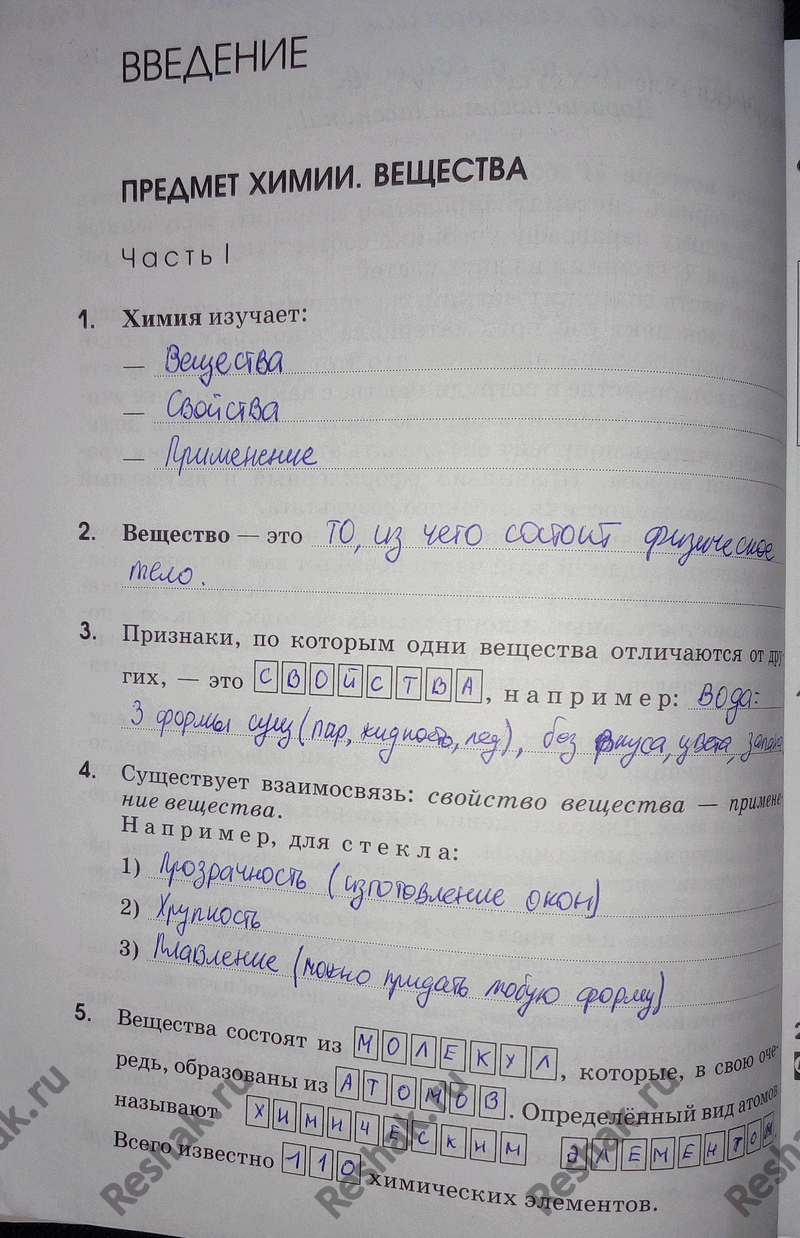 ВВЕДЕНИЕ
ПРЕДМЕТ ХИМИИ. ВЕЩЕСТВА
Часть I
1. Химия изучает:
— Вещества
— Свойства
— Применение
2. Вещество — это то, из чего состоит физическое
тело.
3. Признаки, по которым одни вещества отличаются от дру
гих, — это СВОЙСТВА, например: вода:
3 формы сущ (пар, жидкость, лед), без вкуса, цвета, запаха
4. Существует взаимосвязь: свойство вещества — примене
ние вещества.
Например, для стекла:
1) Прозрачность (изготовление окон)
2) Хрупкость
3) Плавление (можно придать любую форму)
5. Вещества состоят из МОЛЕКУЛ, которые, в свою оче-
редь, образованы из АТОМОВ. Определённый вид атомов
называют ХИМИЧЕСКИМ ЭЛЕМЕНТОМ.
Всего известно 110 химических элементов.
ak.ru
Reshak.ru
Reshak.ru
Reshak.ru
Resh